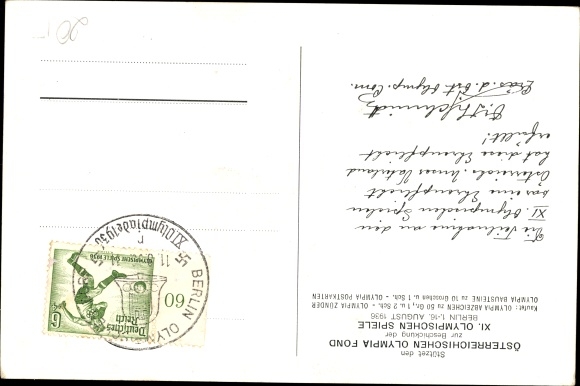 Stützet den
ÖSTERREICHISCHEN OLYMPIA FOND
zur Beschickung der
XI. OLYMPISCHEN SPIELE
BERLIN 1.-16. AUGUST 1936
Kaufet: OLYMPIA ABZEICHEN zu 50 Gr., 1 u. 2 Sch. - OLYMPIA ZÜNDER
OLYMPIA BAUSTEINE zu 10 Groschen u. 1 Sch. - OLYMPIA POSTKARTEN
Die Teilnahme an den
XI. Olympischen Spielen
war eine Ehrenpflicht
Österreichs. Unser Vaterland
hat diese Ehrenpflicht
erfüllt!
Präs. d. öst. Olymp. Com.
Deutsches
Reich
6
OLYMPISCHE SPIELE 1936
60
BERLIN
XI. Olympiade 1936
r
20